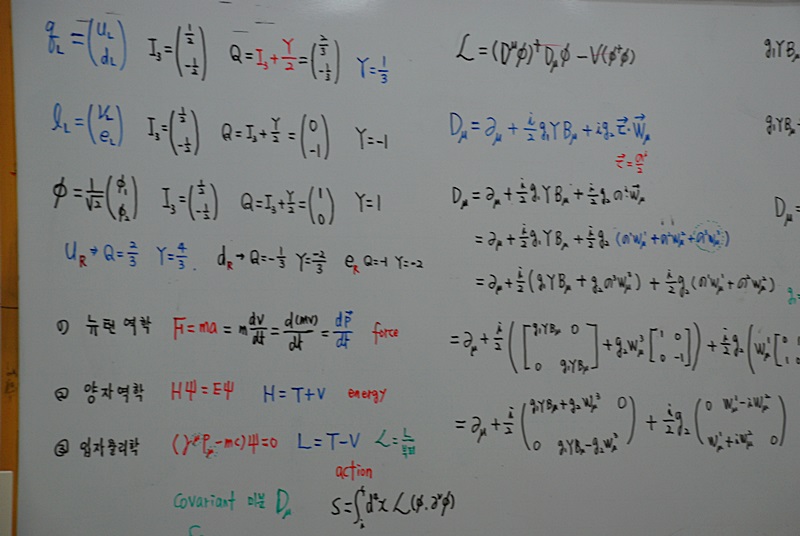 q_L = (u_L d_L) I₃ = (1/2 -1/2) Q = I₃ + Y/2 = (2/3 -1/3) Y = 1/3
l_L = (ν_L e_L) I₃ = (1/2 -1/2) Q = I₃ + Y/2 = (0 -1) Y = -1
ϕ = 1/√2 (ϕ₁ ϕ₂) I₃ = (1/2 -1/2) Q = I₃ + Y/2 = (1 0) Y = 1
U_R → Q = 2/3 Y = 4/3. d_R → Q = -1/3 Y = -2/3 e_R Q = -1 Y = -2
① 뉴턴역학 F = ma = m dv/dt = d(mv)/dt = dP⃗/dt force
② 양자역학 HΨ = EΨ H = T + V energy
③ 입자물리학 (γ^μ P_μ - mc)Ψ = 0 L = T - V ℒ = L/부피
action
Covariant 미분 D_μ S = ∫ d⁴x ℒ(ϕ, ∂^μϕ)
ℒ = (D^μϕ)†D_μϕ - V(ϕ†ϕ)
D_μ = ∂_μ + i/2 g₁YB_μ + i g₂ τ⃗·W⃗_μ
τ⃗ = σ^i/2
D_μ = ∂_μ + i/2 g₁YB_μ + i/2 g₂ σ⃗·W⃗_μ
= ∂_μ + i/2 g₁YB_μ + i/2 g₂ (σ¹W¹_μ + σ²W²_μ + σ³W³_μ)
= ∂_μ + i/2 (g₁YB_μ + g₂σ³W³_μ) + i/2 g₂ (σ¹W¹_μ + σ²W²_μ)
= ∂_μ + i/2 ([g₁YB_μ 0 0 g₁YB_μ] + g₂W³_μ [1 0 0 -1]) + i/2 g₂ (W¹_μ [0 1
= ∂_μ + i/2 (g₁YB_μ + g₂W³_μ 0 0 g₁YB_μ - g₂W³_μ) + i/2 g₂ (0 W¹_μ - iW²_μ W¹_μ + iW²_μ 0)
g₁YB_μ
g₁YB_μ
D_μ =